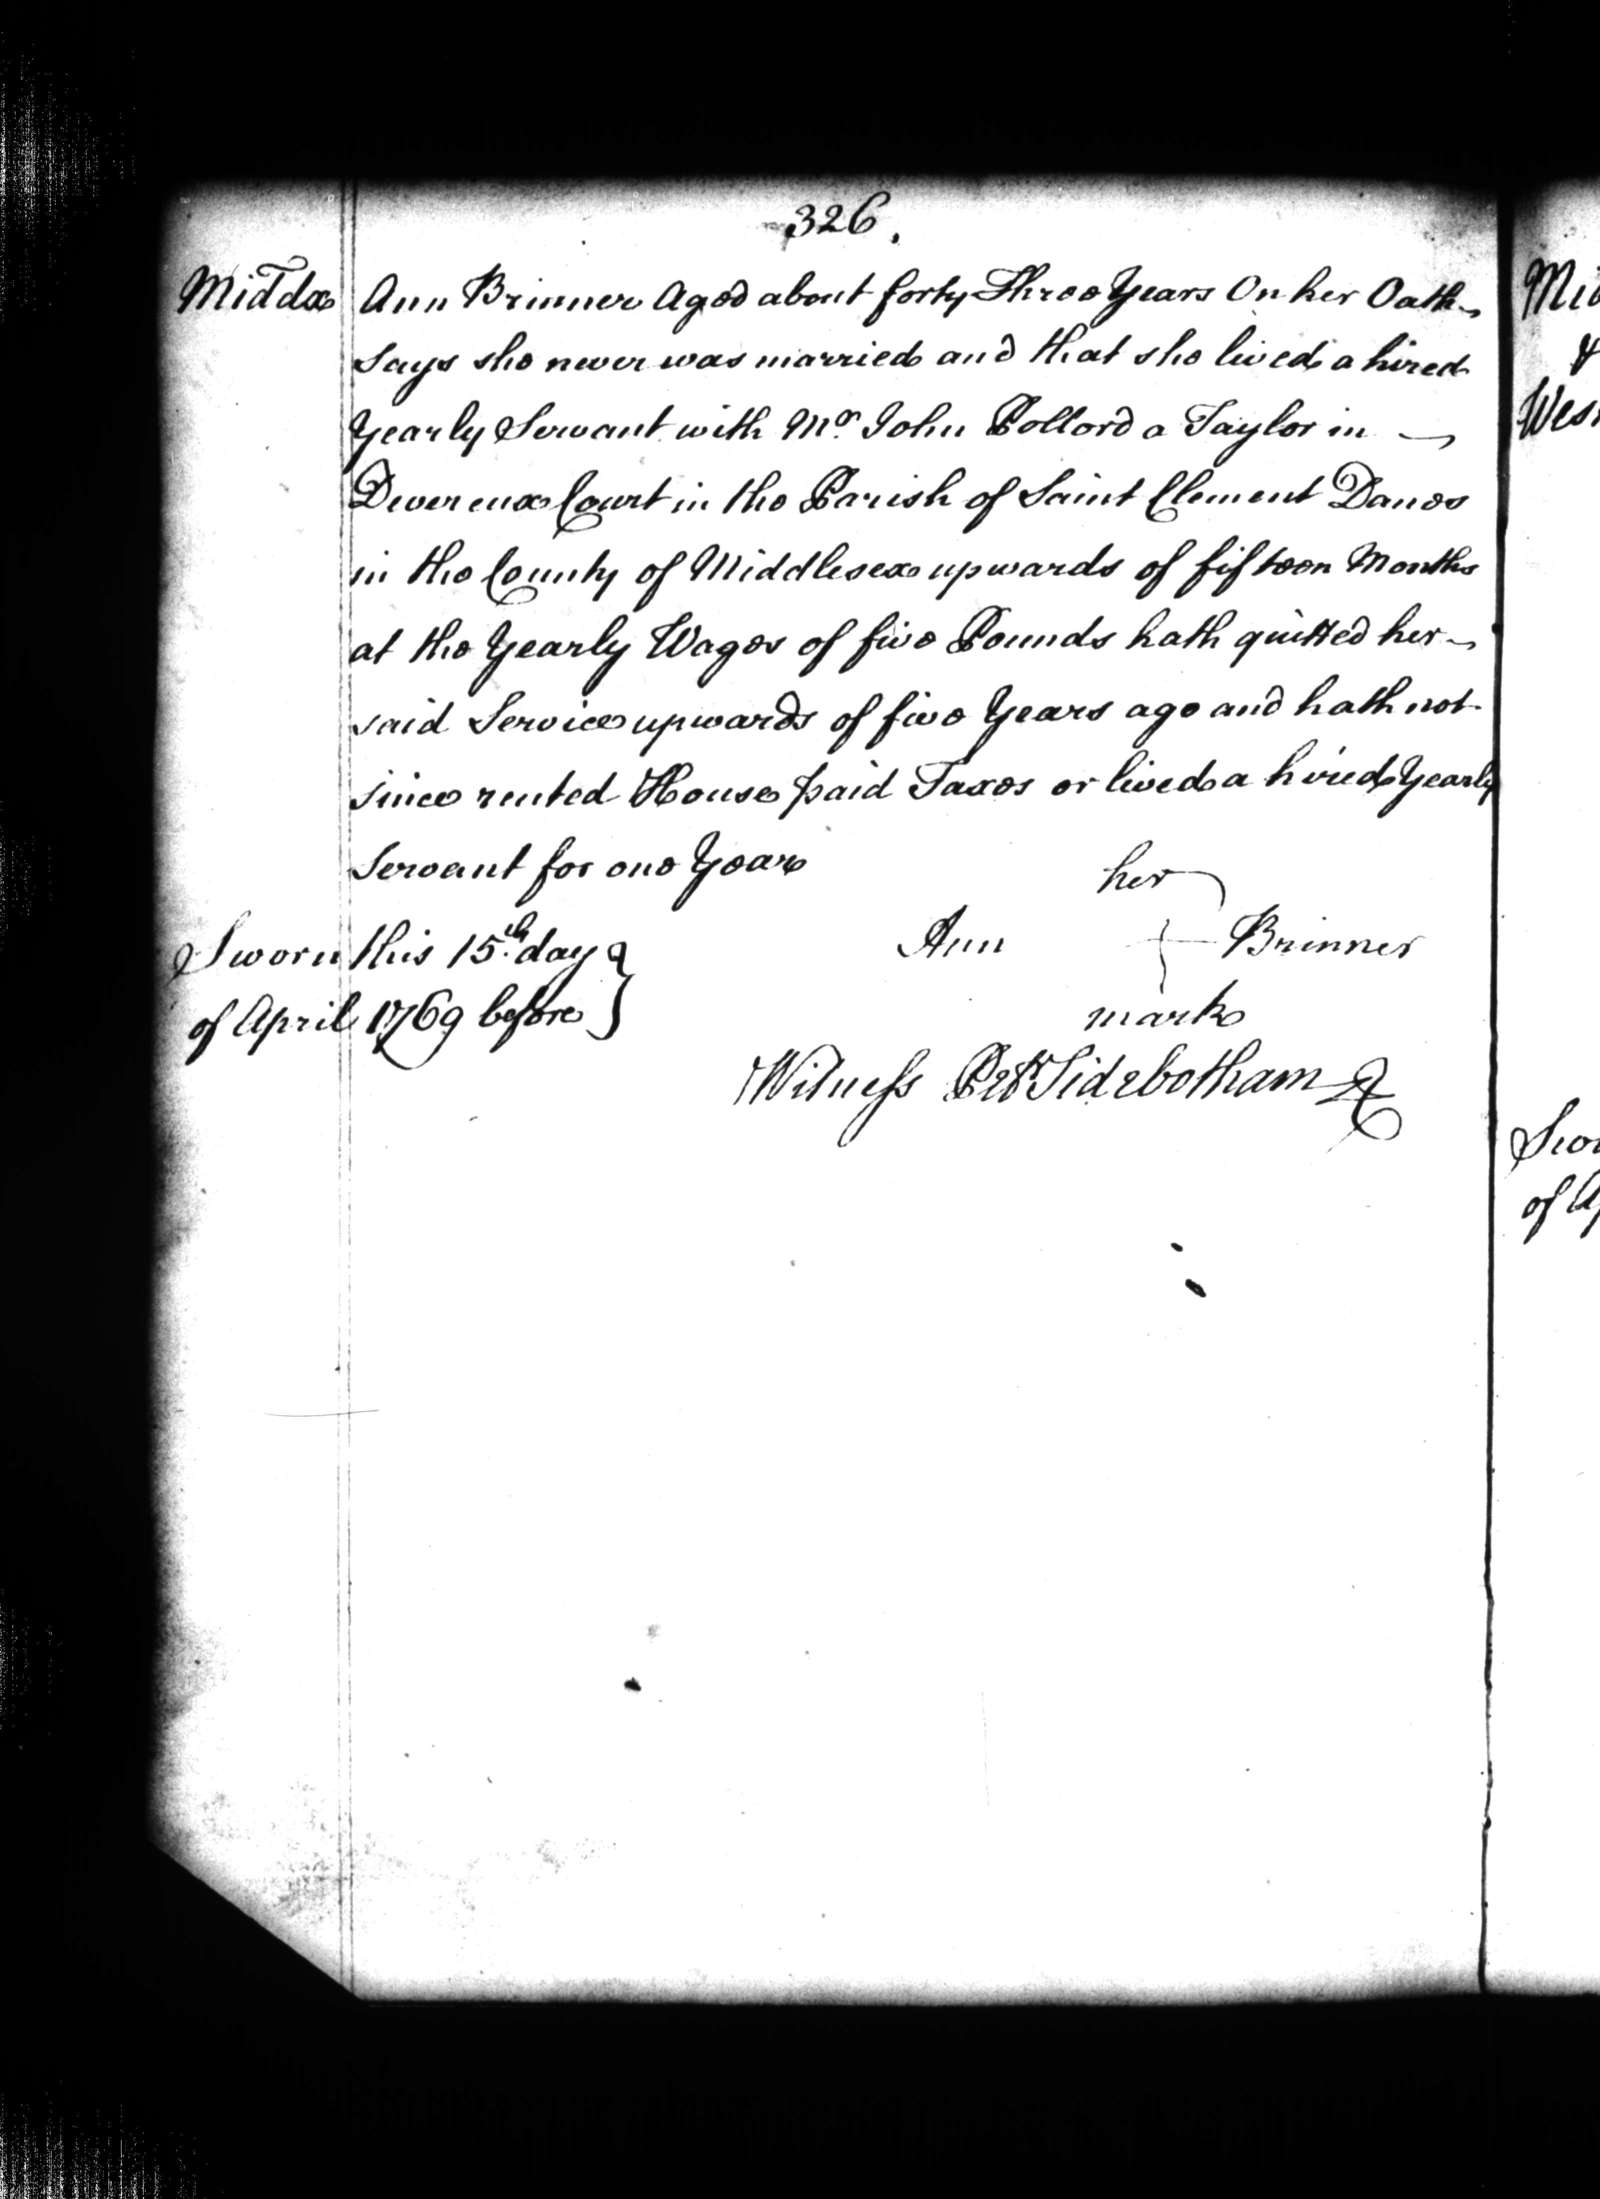 326.
Middx Ann Brinner Aged about forty Three Years On her Oath
Says she never was married and that she lived a hired
Yearly Servant with Mr. John Pollord a Taylor in
Devereux Court in the Parish of Saint Clement Danes
in the County of Middlesex upwards of fifteen Months
at the Yearly Wages of five Pounds hath quitted her
said Service upwards of five Years ago and hath not
since rented House paid Taxes or lived a hired Yearly
Servant for one Year
her
Sworn this 15th. day Ann + Brinner
of April 1769 before mark
Witness Petr Sidebotham
Mid
&
Wes
Swo
of Ap